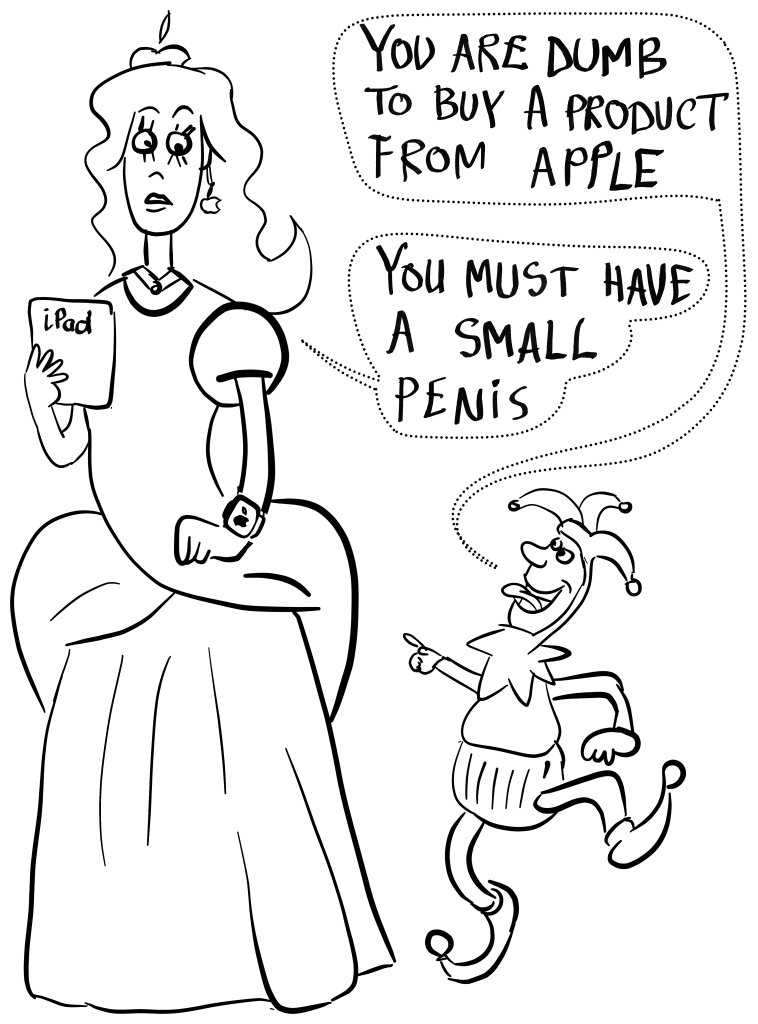 YOU ARE DUMB
TO BUY A PRODUCT
FROM APPLE
YOU MUST HAVE
A SMALL
PENiS
iPad